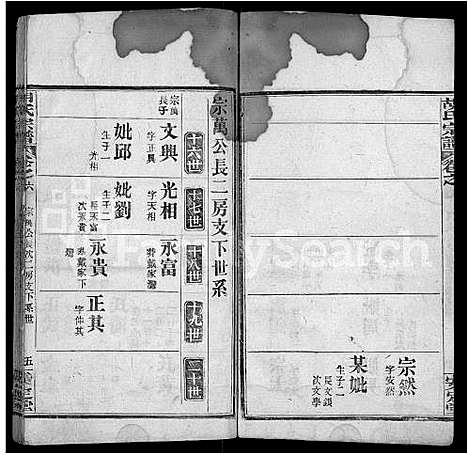 胡氏宗譜
宗然
字安然
某妣
生子二
長文錦
次文學
宗萬公長二房支下世系
十六世
十七世
十八世
十九世
二十世
宗萬
長子
文興
字正興
妣邱
生子一
光相
光相
字天相
妣劉
生子二
長永富
次永貴
永富
葬戴家灣
永貴
葬戴家下
灣
正其
字仲其
宗萬公長次二房支下系世
五
FamilySearch